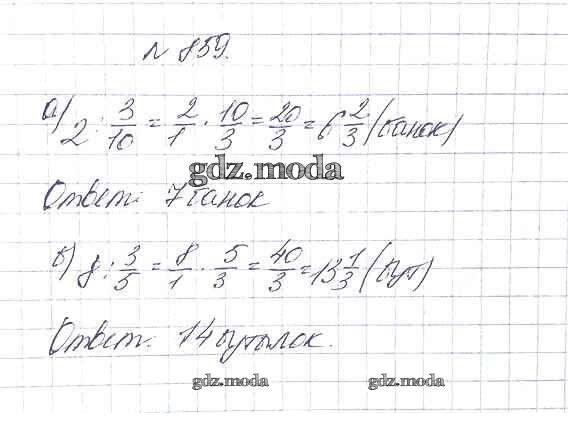 № 859.
а) 2 : 3/10 = 2/1 · 10/3 = 20/3 = 6 2/3 (банок)
gdz.moda
Ответ: 7 банок
б) 8 : 3/5 = 8/1 · 5/3 = 40/3 = 13 1/3 (бут)
Ответ: 14 бутылок.
gdz.moda gdz.moda